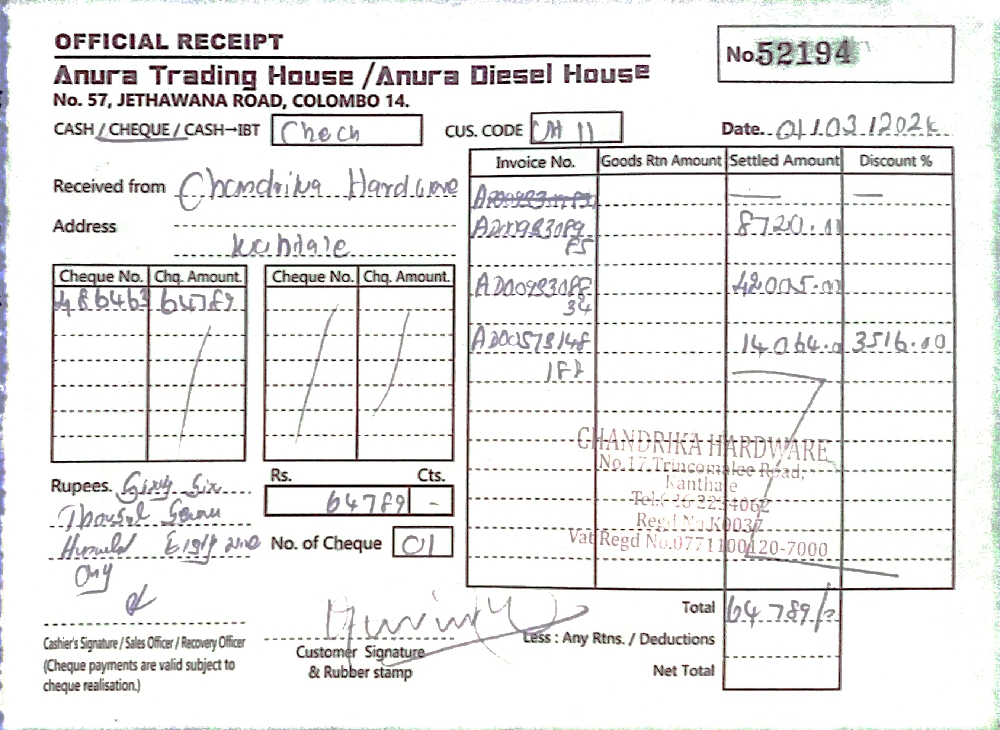 OFFICIAL RECEIPT
No. 52194
Anura Trading House / Anura Diesel House
No. 57, JETHAWANA ROAD, COLOMBO 14.
CASH / CHEQUE / CASH→IBT Chech
CUS. CODE CH 11
Date. 01.03.202
Received from Chandrika Hardware
Address
Invoice No. Goods Rtn Amount Settled Amount Discount %
8720.00
85
42005.00
34
14064.0 3516.00
Cheque No. Chq. Amount. Cheque No. Chq. Amount.
486463 64789
CHANDRIKA HARDWARE
No.17, Trincomalee Road,
Kanthale
Tel:026 2234062
Regd No.K0037
Vat Regd No.0771100120-7000
Rupees. Sixty Six
Thousand Seven
Hundred Eighty nine
Only
Rs. Cts.
64789 -
No. of Cheque 01
Total 64 789/=
Less : Any Rtns. / Deductions
Net Total
Cashier's Signature / Sales Officer / Recovery Officer
(Cheque payments are valid subject to
cheque realisation.)
Customer Signature
& Rubber stamp